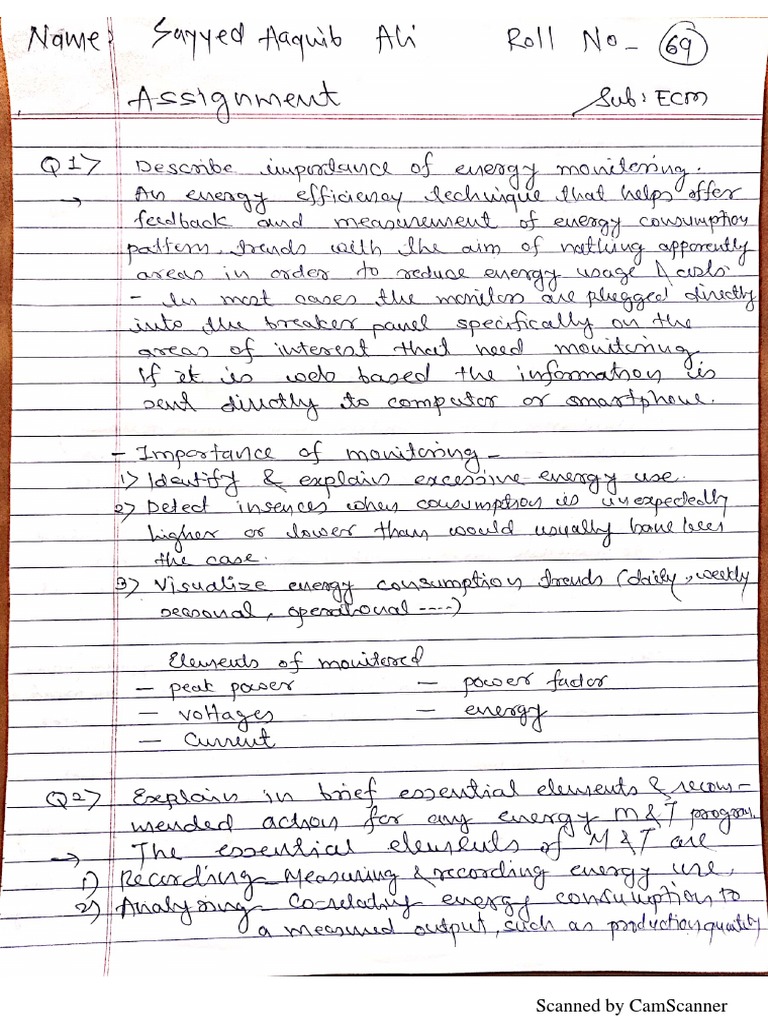 Name: Sayyed Aaquib Ali Roll No- 69
Assignment Sub: ECM
Q1> Describe importance of energy monitoring.
→ An energy efficiency technique that helps offer
feedback and measurement of energy consumption
pattern, trends with the aim of apparently
areas in order to reduce energy usage & costs
- In most cases the monitors are plugged directly
into the breaker panel specifically on the
areas of interest that need monitoring
If it is web based the information is
sent directly to computer or smartphone.
- Importance of monitoring -
1) Identify & explain excessive energy use.
2) Detect when consumption is unexpectedly
higher or lower than would usually have been
the case.
3) Visualize energy consumption trends (daily, weekly
seasonal, operational ----)
Elements of monitored
- peak power - power factor
- voltages - energy
- Current
Q2> Explain in brief essential elements & recom-
mended action for any energy M&T program.
→ The essential elements of M&T are
1) Recording - Measuring & recording energy use,
2) Analysing - Co-relating energy consumption to
a measured output, such as production quantity
Scanned by CamScanner